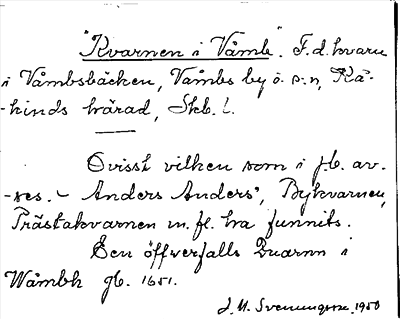 "Kvarnen i Våmb". F.d. kvarn
i Våmbsbäcken, Våmbs by o. s:n, Kå-
-kinds härad, Skb. l.
Ovisst vilken som i jb. av-
-ses. - Anders Anders', Bykvarnen,
Prästakvarnen m.fl. ha funnits.
Een öffwerfalls Quarnn i
Wåmbh jb. 1651.
J. M. Svenungsson, 1950